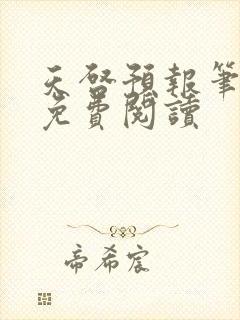 天啓預報筆
免費閱讀
帝希宸